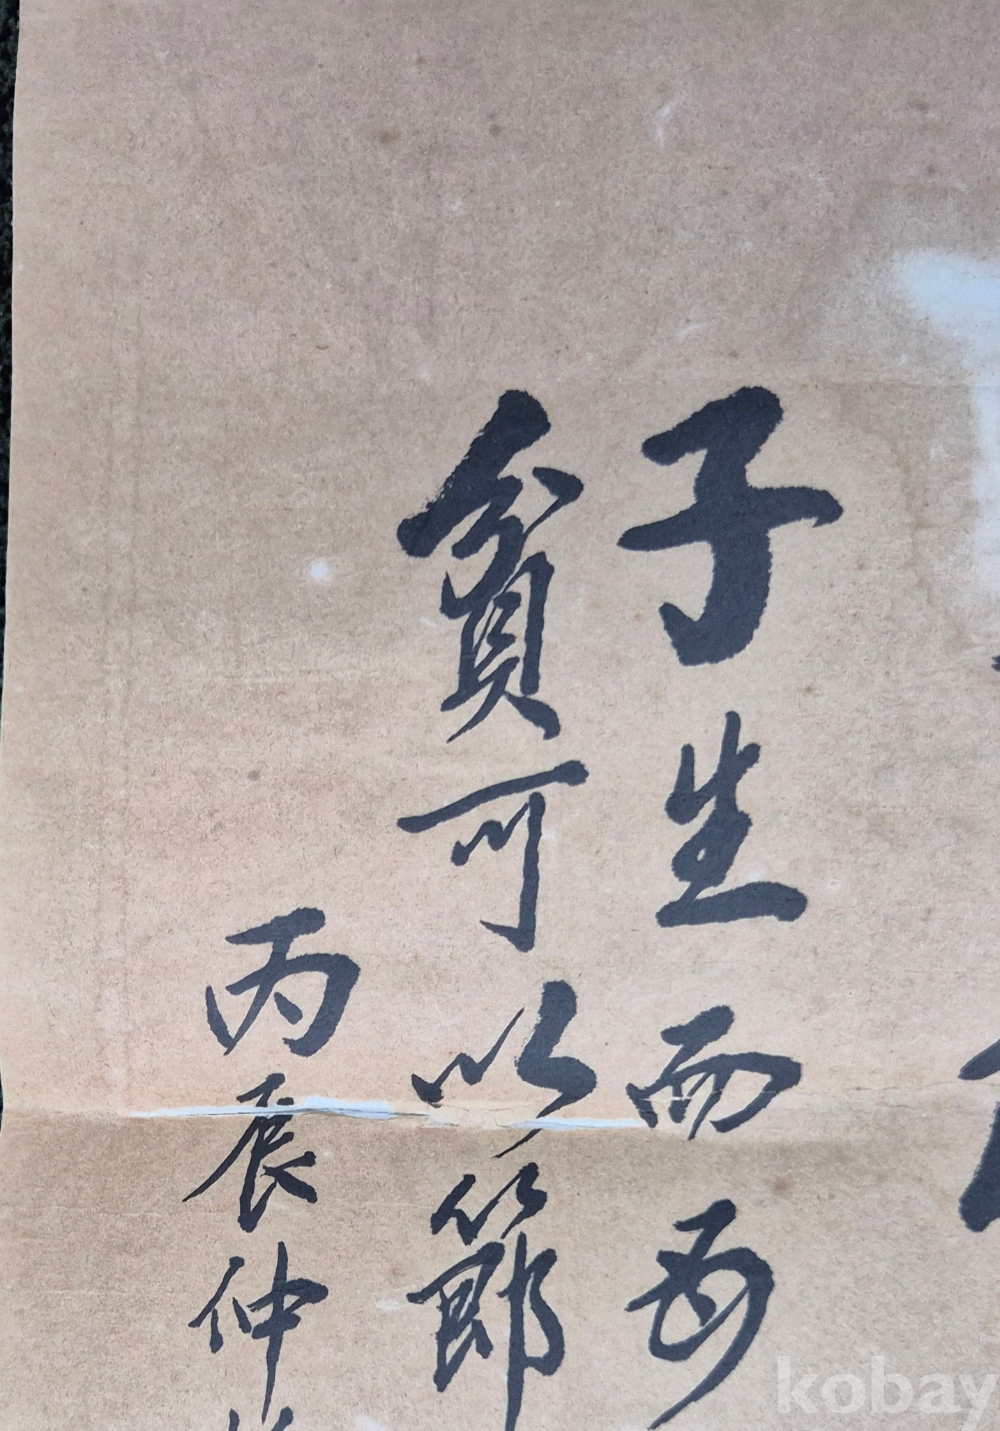 子生而母
貧可以節
丙辰仲
kobay